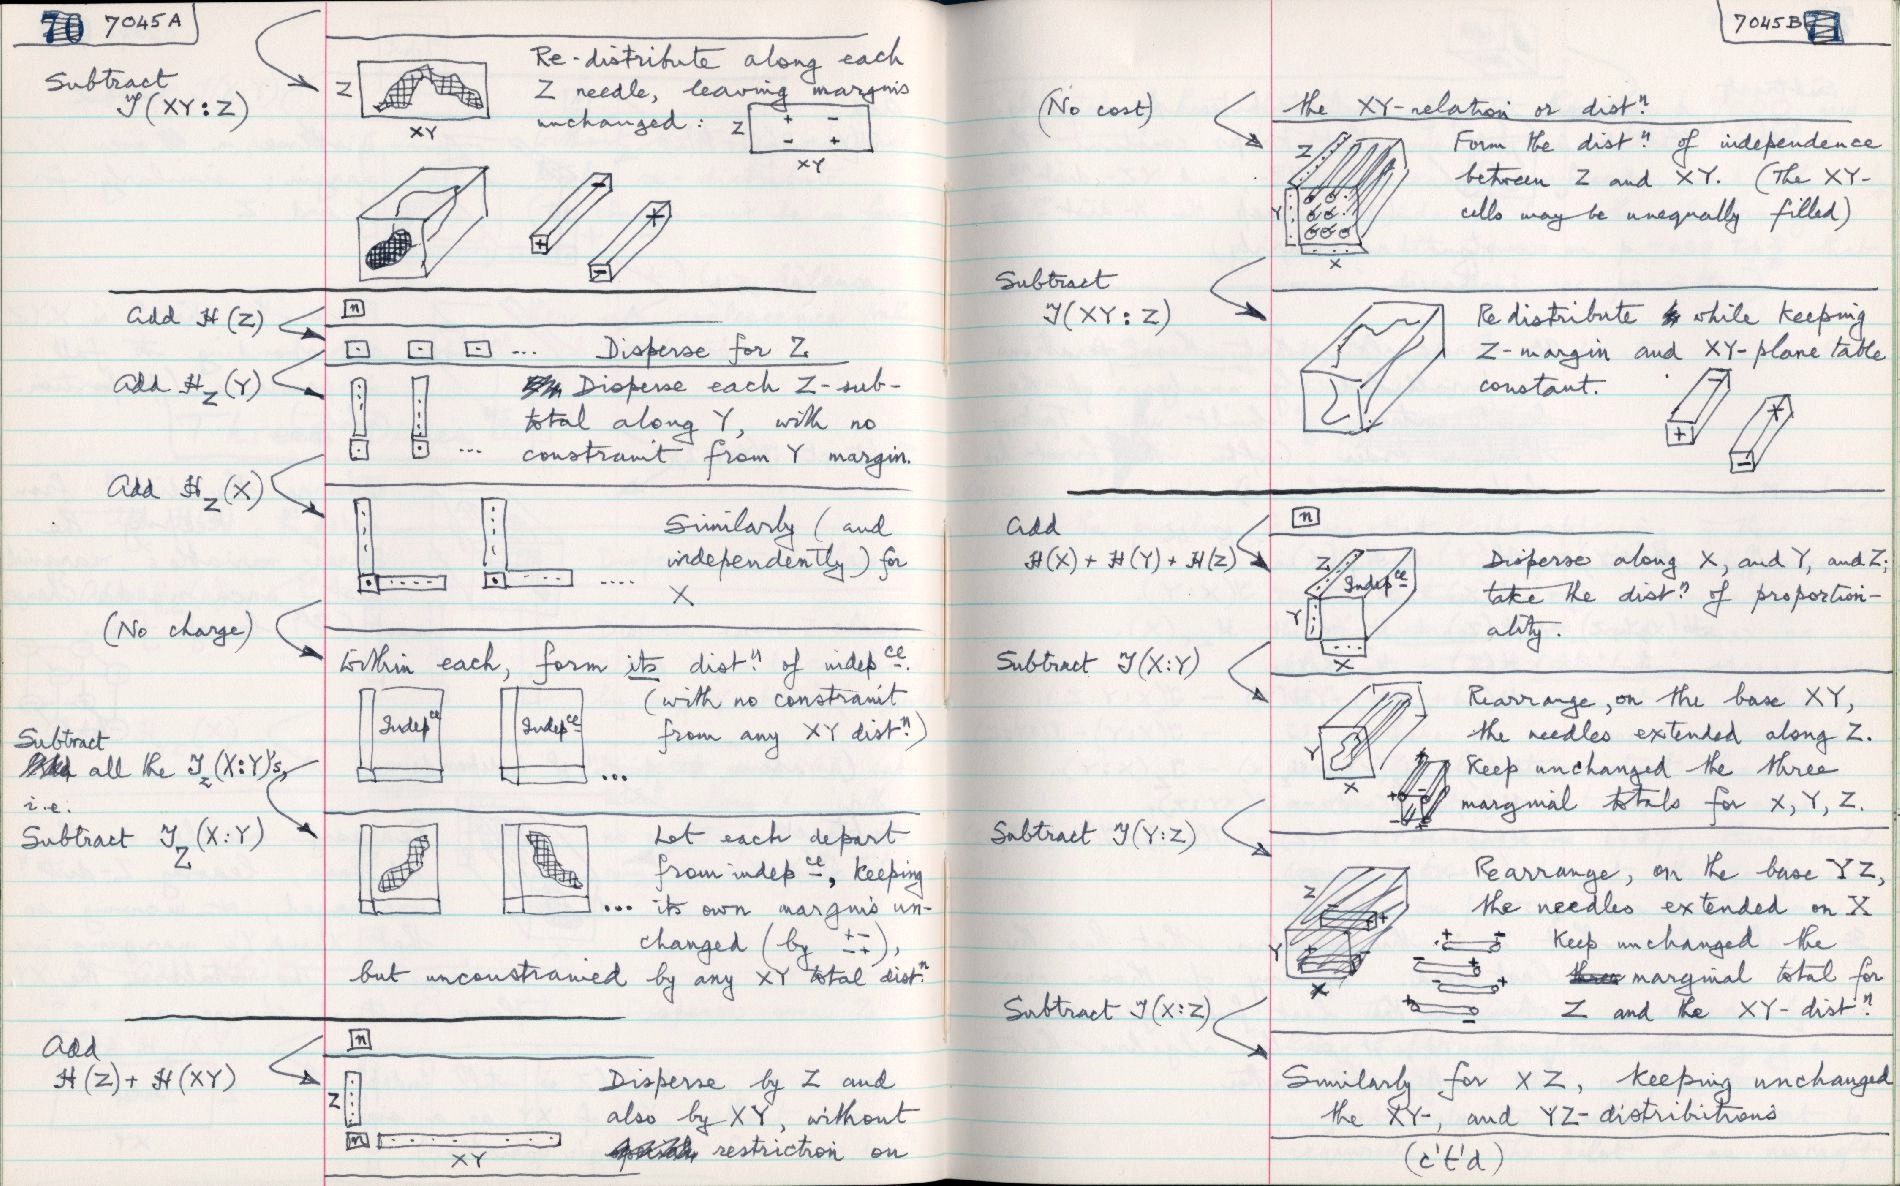 70 7045A
Subtract
𝒯(XY:Z)
Z
XY
Re-distribute along each
Z needle, leaving margins
unchanged:
Z
+ -
- +
XY
- +
+ -
Add H(Z)
n
. . . ... Disperse for Z
Add H_Z(Y)
Disperse each Z-sub-
total along Y, with no
... constraint from Y margin.
Add H_Z(X)
Similarly (and
independently) for
.... X
(No charge)
Within each, form its dist.ⁿ of indep ce.
Indep ce Indep ce
(with no constraint
from any XY dist.ⁿ)
...
Subtract
all the 𝒯_z(X:Y)'s,
i.e.
Subtract 𝒯_Z(X:Y)
Let each depart
from indep ce, keeping
... its own margins un-
changed (by +- -+),
but unconstrained by any XY total dist.ⁿ
Add
H(Z)+ H(XY)
n
Z
n
XY
Disperse by Z and
also by XY, without
restriction on
7045B
(No cost)
the XY-relation or dist.ⁿ
Z
Y
X
Form the dist.ⁿ of independence
between Z and XY. (The XY-
cells may be unequally filled)
Subtract
𝒯(XY:Z)
Redistribute while keeping
Z-margin and XY-plane table
constant.
- +
+ -
Add
H(X)+H(Y)+H(Z)
n
Z
Indep ce
Y
X
Disperse along X, and Y, and Z;
take the dist.ⁿ of proportion-
ality.
Subtract 𝒯(X:Y)
Y
X
+ -
- +
Rearrange, on the base XY,
the needles extended along Z.
Keep unchanged the three
marginal totals for X, Y, Z.
Subtract 𝒯(Y:Z)
Z
Y
X
- +
+ -
- +
- +
+ -
Rearrange, on the base YZ,
the needles extended on X
Keep unchanged the
marginal total for
Z and the XY-dist.ⁿ
Subtract 𝒯(X:Z)
Similarly for XZ, keeping unchanged
the XY-, and YZ-distributions
(c't'd)